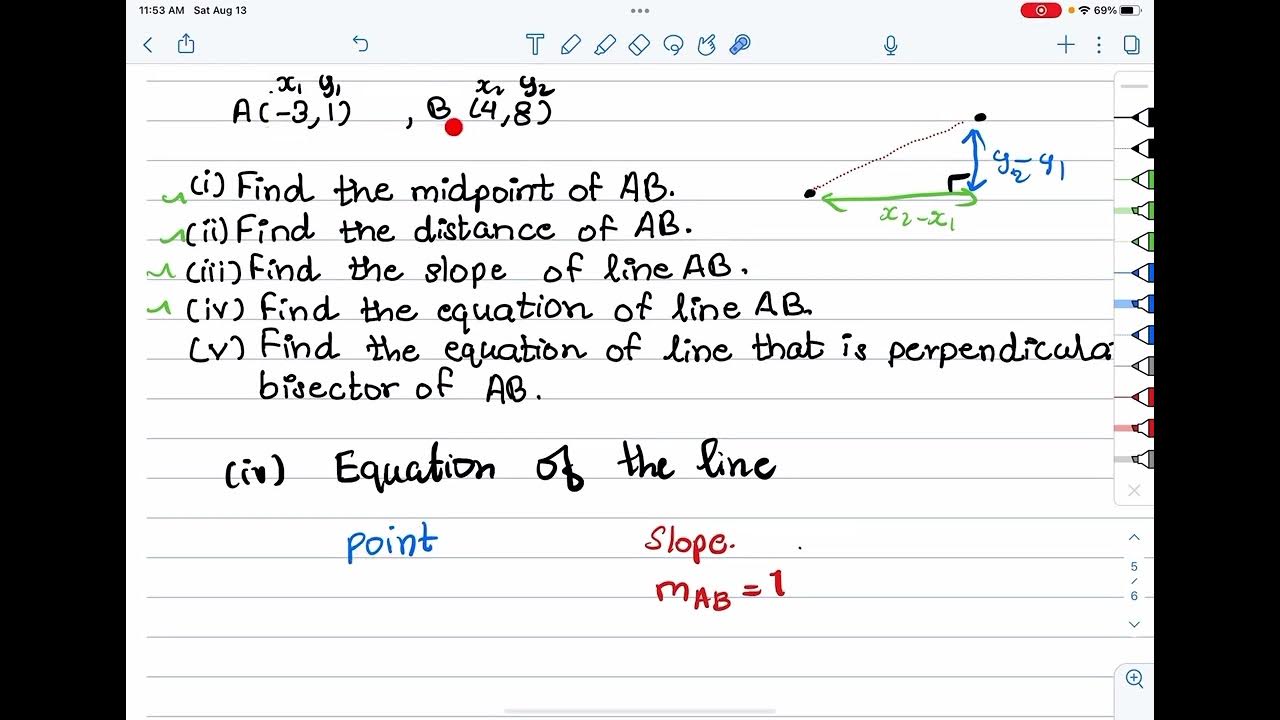 11:53 AM Sat Aug 13
69%
x₁ y₁ x₂ y₂
A(-3,1) , B (4,8)
y₂-y₁
x₂-x₁
(i) Find the midpoint of AB.
(ii) Find the distance of AB.
(iii) Find the slope of line AB.
(iv) Find the equation of line AB.
(v) Find the equation of line that is perpendicula
bisector of AB.
(iv) Equation of the line
point slope.
m_AB = 1
5
/
6